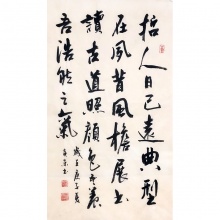 哲人日已遠典型
在夙昔風檐展书
讀古道照顏色善養
吾浩然之氣
庚子夏
书